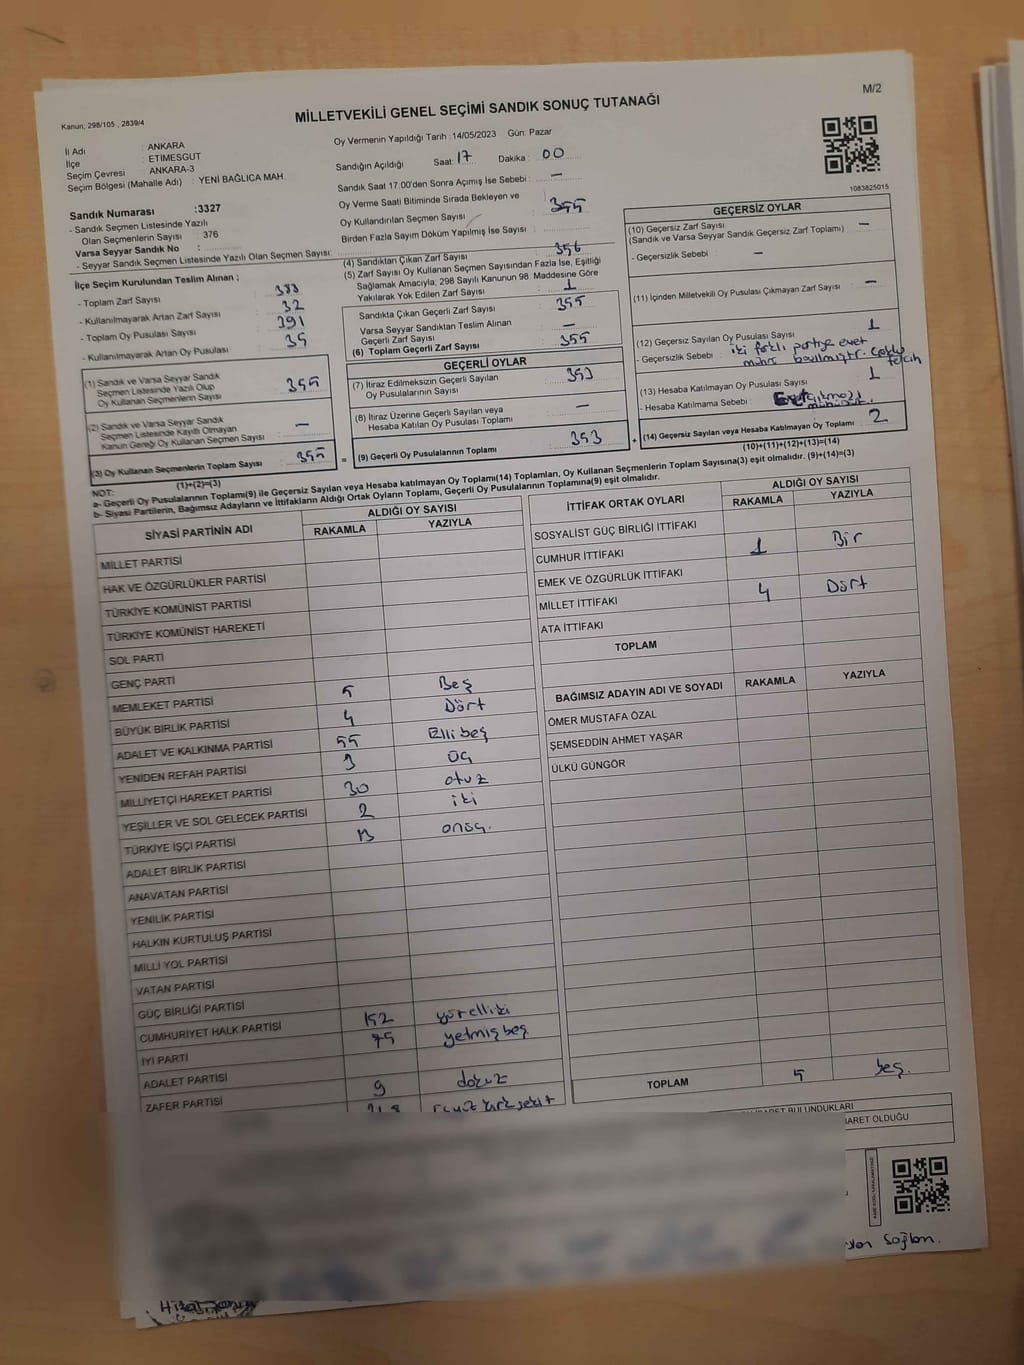 M/2
Kanun; 298/105 , 2839/4
MİLLETVEKİLİ GENEL SEÇİMİ SANDIK SONUÇ TUTANAĞI
İl Adı : ANKARA
İlçe : ETİMESGUT
Seçim Çevresi : ANKARA-3
Seçim Bölgesi (Mahalle Adı) : YENİ BAĞLICA MAH.
Sandık Numarası :3327
- Sandık Seçmen Listesinde Yazılı
Olan Seçmenlerin Sayısı : 376
Varsa Seyyar Sandık No :
- Seyyar Sandık Seçmen Listesinde Yazılı Olan Seçmen Sayısı:
Oy Vermenin Yapıldığı Tarih : 14/05/2023 Gün: Pazar
Sandığın Açıldığı Saat: 17 Dakika : 00
Sandık Saat 17.00'den Sonra Açımış İse Sebebi : —
Oy Verme Saati Bitiminde Sırada Bekleyen ve
Oy Kullandırılan Seçmen Sayısı : 355
Birden Fazla Sayım Döküm Yapılmış İse Sayısı :
1083825015
İlçe Seçim Kurulundan Teslim Alınan ;
- Toplam Zarf Sayısı : 388
- Kullanılmayarak Artan Zarf Sayısı : 32
- Toplam Oy Pusulası Sayısı : 391
- Kullanılmayarak Artan Oy Pusulası : 35
(1) Sandık ve Varsa Seyyar Sandık
Seçmen Listesinde Yazılı Olup
Oy Kullanan Seçmenlerin Sayısı : 355
(2) Sandık ve Varsa Seyyar Sandık
Seçmen Listesinde Kayıtlı Olmayan
Kanun Gereği Oy Kullanan Seçmen Sayısı : —
(3) Oy Kullanan Seçmenlerin Toplam Sayısı : 355
(1)+(2)=(3)
(4) Sandıktan Çıkan Zarf Sayısı : 356
(5) Zarf Sayısı Oy Kullanan Seçmen Sayısından Fazla İse, Eşitliği
Sağlamak Amacıyla; 298 Sayılı Kanunun 98. Maddesine Göre
Yakılarak Yok Edilen Zarf Sayısı : 1
Sandıkta Çıkan Geçerli Zarf Sayısı : 355
Varsa Seyyar Sandıktan Teslim Alınan
Geçerli Zarf Sayısı : —
(6) Toplam Geçerli Zarf Sayısı : 355
GEÇERLİ OYLAR
(7) İtiraz Edilmeksizin Geçerli Sayılan
Oy Pusulalarının Sayısı : 353
(8) İtiraz Üzerine Geçerli Sayılan veya
Hesaba Katılan Oy Pusulası Toplamı : —
= (9) Geçerli Oy Pusulalarının Toplamı : 353 +
GEÇERSİZ OYLAR
(10) Geçersiz Zarf Sayısı : —
(Sandık ve Varsa Seyyar Sandık Geçersiz Zarf Toplamı)
- Geçersizlik Sebebi : —
(11) İçinden Milletvekili Oy Pusulası Çıkmayan Zarf Sayısı : —
(12) Geçersiz Sayılan Oy Pusulası Sayısı : 1
- Geçersizlik Sebebi : iki farklı partiye evet
mührü basılmıştır.
(13) Hesaba Katılmayan Oy Pusulası Sayısı : 1
- Hesaba Katılmama Sebebi :
(14) Geçersiz Sayılan veya Hesaba Katılmayan Oy Toplamı : 2
(10)+(11)+(12)+(13)=(14)
NOT:
a- Geçerli Oy Pusulalarının Toplamı(9) ile Geçersiz Sayılan veya Hesaba katılmayan Oy Toplamı(14) Toplamları, Oy Kullanan Seçmenlerin Toplam Sayısına(3) eşit olmalıdır. (9)+(14)=(3)
b- Siyasi Partilerin, Bağımsız Adayların ve İttifakların Aldığı Ortak Oyların Toplamı, Geçerli Oy Pusulalarının Toplamına(9) eşit olmalıdır.
SİYASİ PARTİNİN ADI ALDIĞI OY SAYISI
RAKAMLA YAZIYLA
MİLLET PARTİSİ
HAK VE ÖZGÜRLÜKLER PARTİSİ
TÜRKİYE KOMÜNİST PARTİSİ
TÜRKİYE KOMÜNİST HAREKETİ
SOL PARTİ
GENÇ PARTİ
MEMLEKET PARTİSİ 5 Beş
BÜYÜK BİRLİK PARTİSİ 4 Dört
ADALET VE KALKINMA PARTİSİ 55 Elli beş
YENİDEN REFAH PARTİSİ 3 Üç
MİLLİYETÇİ HAREKET PARTİSİ 30 otuz
YEŞİLLER VE SOL GELECEK PARTİSİ 2 iki
TÜRKİYE İŞÇİ PARTİSİ 13 onüç.
ADALET BİRLİK PARTİSİ
ANAVATAN PARTİSİ
YENİLİK PARTİSİ
HALKIN KURTULUŞ PARTİSİ
MİLLİ YOL PARTİSİ
VATAN PARTİSİ
GÜÇ BİRLİĞİ PARTİSİ
CUMHURİYET HALK PARTİSİ 152 yüzelliiki
İYİ PARTİ 75 yetmişbeş
ADALET PARTİSİ
ZAFER PARTİSİ 9 dokuz
İTTİFAK ORTAK OYLARI ALDIĞI OY SAYISI
RAKAMLA YAZIYLA
SOSYALİST GÜÇ BİRLİĞİ İTTİFAKI
CUMHUR İTTİFAKI 1 Bir
EMEK VE ÖZGÜRLÜK İTTİFAKI
MİLLET İTTİFAKI 4 Dört
ATA İTTİFAKI
TOPLAM
BAĞIMSIZ ADAYIN ADI VE SOYADI RAKAMLA YAZIYLA
ÖMER MUSTAFA ÖZAL
ŞEMSEDDİN AHMET YAŞAR
ÜLKÜ GÜNGÖR
TOPLAM 5 beş.
BULUNDUKLARI
OLDUĞU